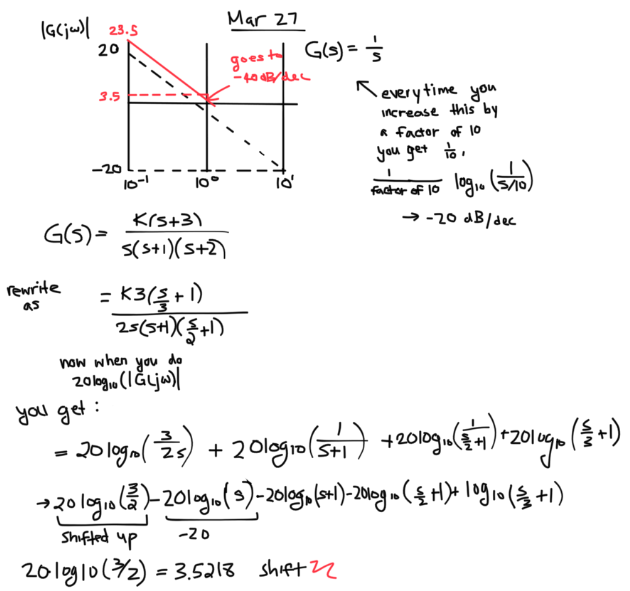 Mar 27
|G(jω)|
23.5
20
3.5
-20
10⁻¹ 10⁰ 10¹
goes to
-40dB/dec
G(s) = 1/s
every time you
increase this by
a factor of 10
you get 1/10,
1/factor of 10 log₁₀(1/(s/10))
→ -20 dB/dec
G(s) = K(s+3) / s(s+1)(s+2)
rewrite
as
= K3(s/3 + 1) / 2s(s+1)(s/2+1)
now when you do
20log₁₀(|G(jω)|
you get :
= 20log₁₀(3/2s) + 20log₁₀(1/(s+1)) + 20log₁₀(1/(s/2+1)) + 20log₁₀(s/3+1)
→ 20log₁₀(3/2) - 20log₁₀(s) - 20log₁₀(s+1) - 20log₁₀(s/2+1) + log₁₀(s/3+1)
shifted up -20
20log10(3/2) = 3.5218 shift